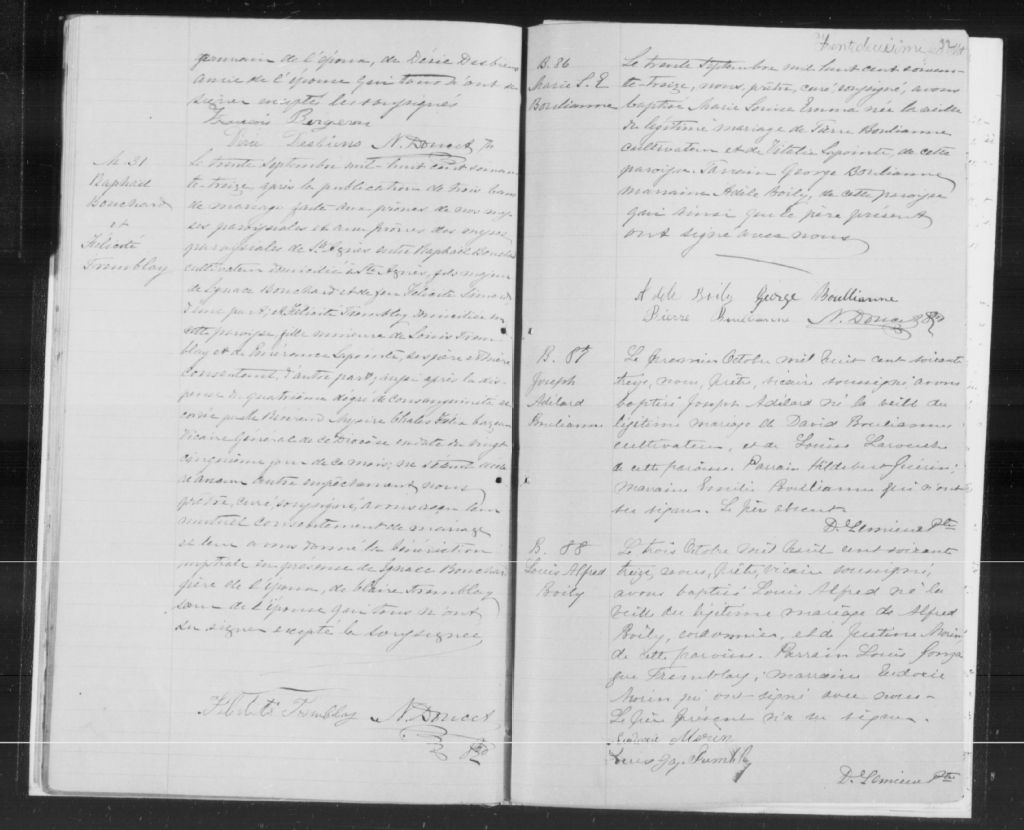 germain de l'épouse, de Dérie Desbiens
amie de l'épouse qui tous n'ont su
signer excepté les soussignés
Francois Bergeron
Desbiens N. Doucet Ptre
M. 31
Raphael
Bouchard
et
Félicité
Tremblay
Le trente Septembre mil-huit cent soixan
te-treize, après la publication de trois bans
de mariage faite aux prônes de nos mes
ses paroissiales et aux prônes des messes
paroissiales de Ste Agnès entre Raphael Bouchard
cultivateur domicilié à Ste Agnès, fils majeur
de Ignace Bouchard et de feu Félicité Simard
d'une part; et Félicité Tremblay domiciliée en
cette paroisse, fille mineure de Louis Trem
blay et de Emérance Lapointe, ses père et mère
consentant, d'autre part; aussi après la dis
pense du quatrième degré de consanguinité ac
cordée par le Révérend Messire Charles Félix Cazeau
Vicaire Général de ce diocèse en date du vingt
cinquième jour de ce mois; ne s'étant décou
vert aucun autre empêchement, nous
prêtre, curé, soussigné, avons reçu leur
mutuel consentement de mariage
et leur avons donné la bénédiction
nuptiale en présence de Ignace Bouchard
père de l'époux, de Claire Tremblay
sœur de l'épouse qui tous n'ont
su signer excepté le soussigné
Félicité Tremblay N. Doucet
Ptre
Trent deuxième
B. 86
Marie L. E
Boulianne
Le trente Septembre mil huit cent soixan-
te-treize, nous, prêtre, curé soussigné, avons
baptisé Marie Louise Emma née la veille
du légitime mariage de Pierre Boulianne
cultivateur et de Vitalie Lapointe, de cette
paroisse. Parrain George Boulianne
marraine Adèle Boily, de cette paroisse
qui ainsi que le père présent
ont signé avec nous
Adèle Boily George Boullianne
Pierre Boulianne N. Doucet Ptre
B. 87
Joseph
Adélard
Boulianne
Le premier Octobre mil huit cent soixante
treize, nous, prêtre, vicaire soussigné avons
baptisé Joseph Adélard né la veille du
légitime mariage de David Boulianne
cultivateur, et de Louise Larouche
de cette paroisse. Parrain Hildebert Guérin;
marraine Emilie Boulianne qui n'ont
su signer. Le père absent.
D. Lemieux Ptre
B. 88
Louis Alfred
Boily
Le trois Octobre mil huit cent soixante
treize, nous, prêtre, vicaire soussigné,
avons baptisé Louis Alfred né la
veille du légitime mariage de Alfred
Boily, cordonnier, et de Justine Morin
de cette paroisse. Parrain Louis Gonza
gue Tremblay; marraine Eudoxie
Morin qui ont signé avec nous.
Le père présent n'a su signer.
Eudoxie Morin
Louis Gaz. Tremblay
D. Lemieux Ptre